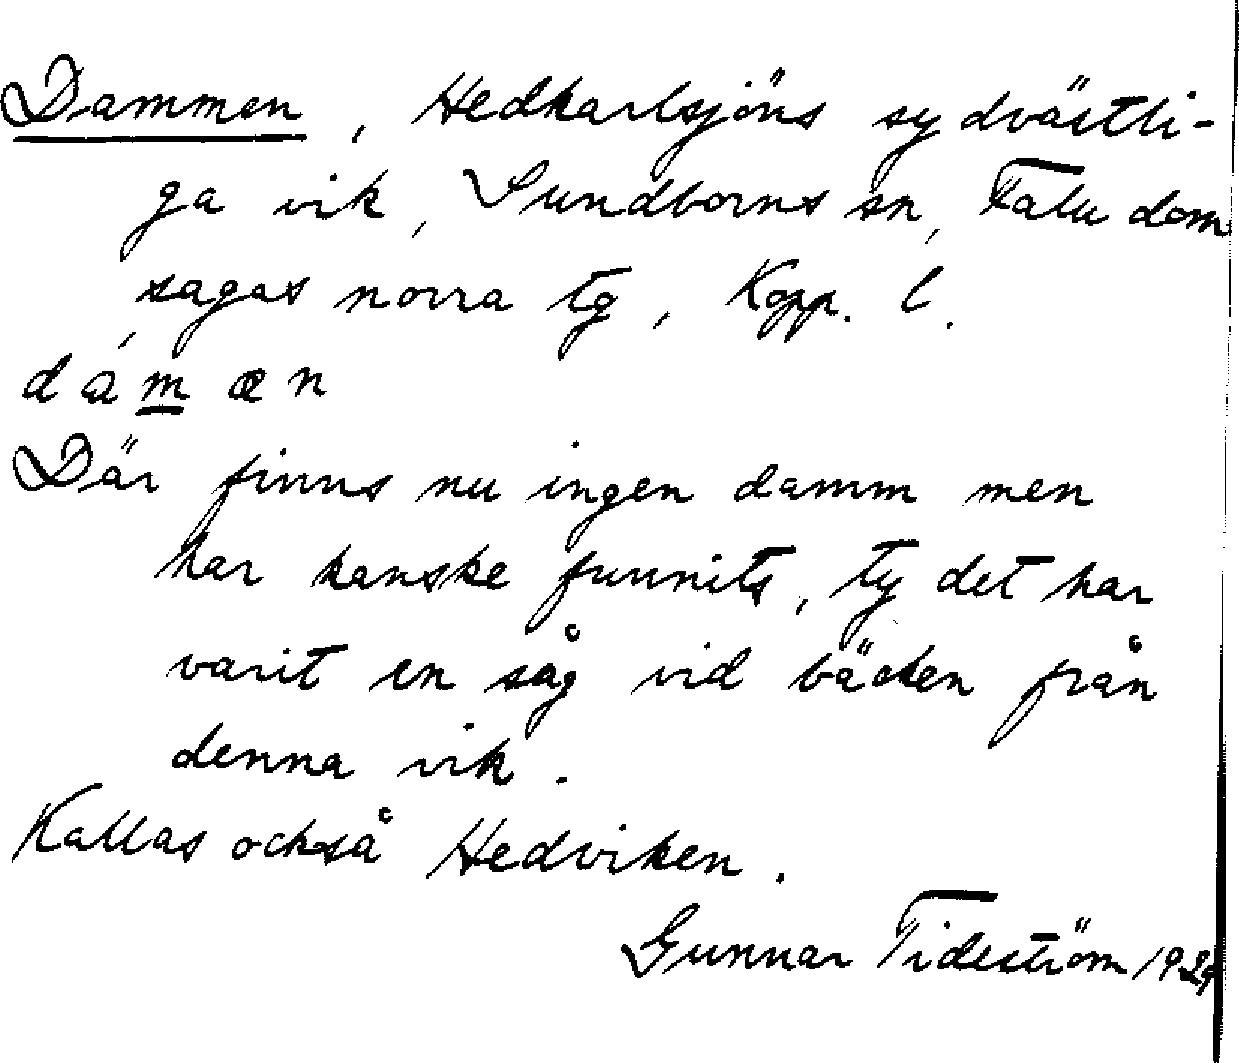 Dammen, Hedkarlsjöns sydvästli-
ga vik, Sundborns sn, Falu dom
sagas norra tg, Kopp. l.
dám̲æn
Där finns nu ingen damm men
har kanske funnits, ty det har
varit en såg vid bäcken från
denna vik.
Kallas också Hedviken.
Gunnar Tideström